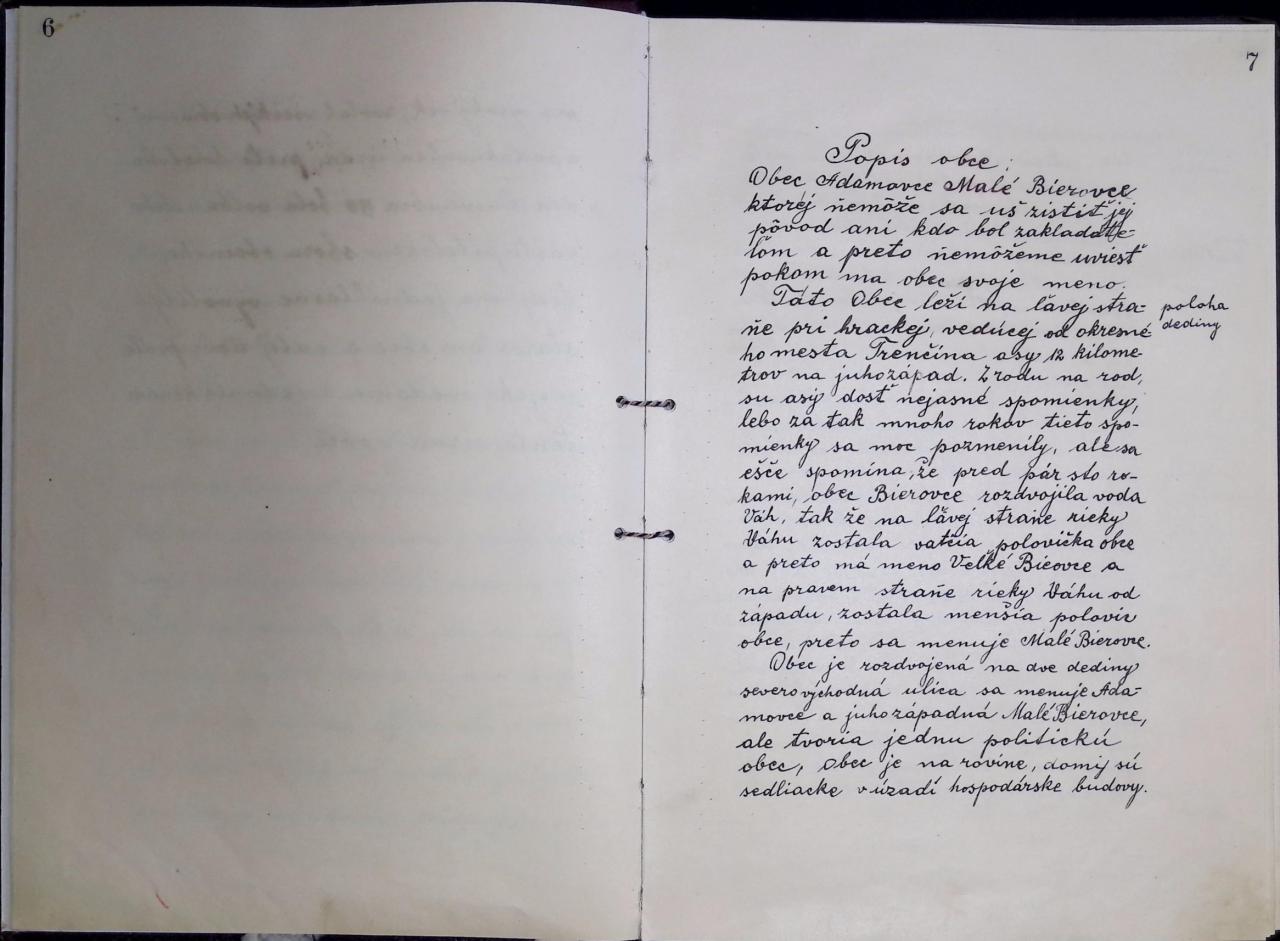 6
7
Popis obce.
Obec Adamovce Malé Bierovce
ktorej ňemôže sa uš zistiť jej
pôvod ani kdo bol zakladate-
ľom a preto ňemôžeme uviesť
pokom ma obec svoje meno.
Táto Obec leží na ľávej stra-
ňe pri hrackej, vedúcej od okresné-
ho mesta Trenčína asy 12 kilome-
trov na juhozápad. Z rodu na rod,
su asy dosť ňejasné spomienky,
lebo za tak mnoho rokov tieto spo-
mienky sa moc pozmenily, ale sa
ešče spomína, že pred pár sto ro-
kami, obec Bierovce rozdvojila voda
Váh, tak že na ľávej straňe rieky
Váhu zostala vatčia polovička obce
a preto má meno Veľké Bieovce a
na pravem straňe rieky Váhu od
západu, zostala menšia polovic
obce, preto sa menuje Malé Bierovce.
Obec je rozdvojená na dve dediny
severovýchodná ulica sa menuje Ada-
movce a juhozápadná Malé Bierovce,
ale tvoria jednu politickú
obec, Obec je na rovine, domy sú
sedliacke v úzadí hospodárske budovy.
poloha
dediny